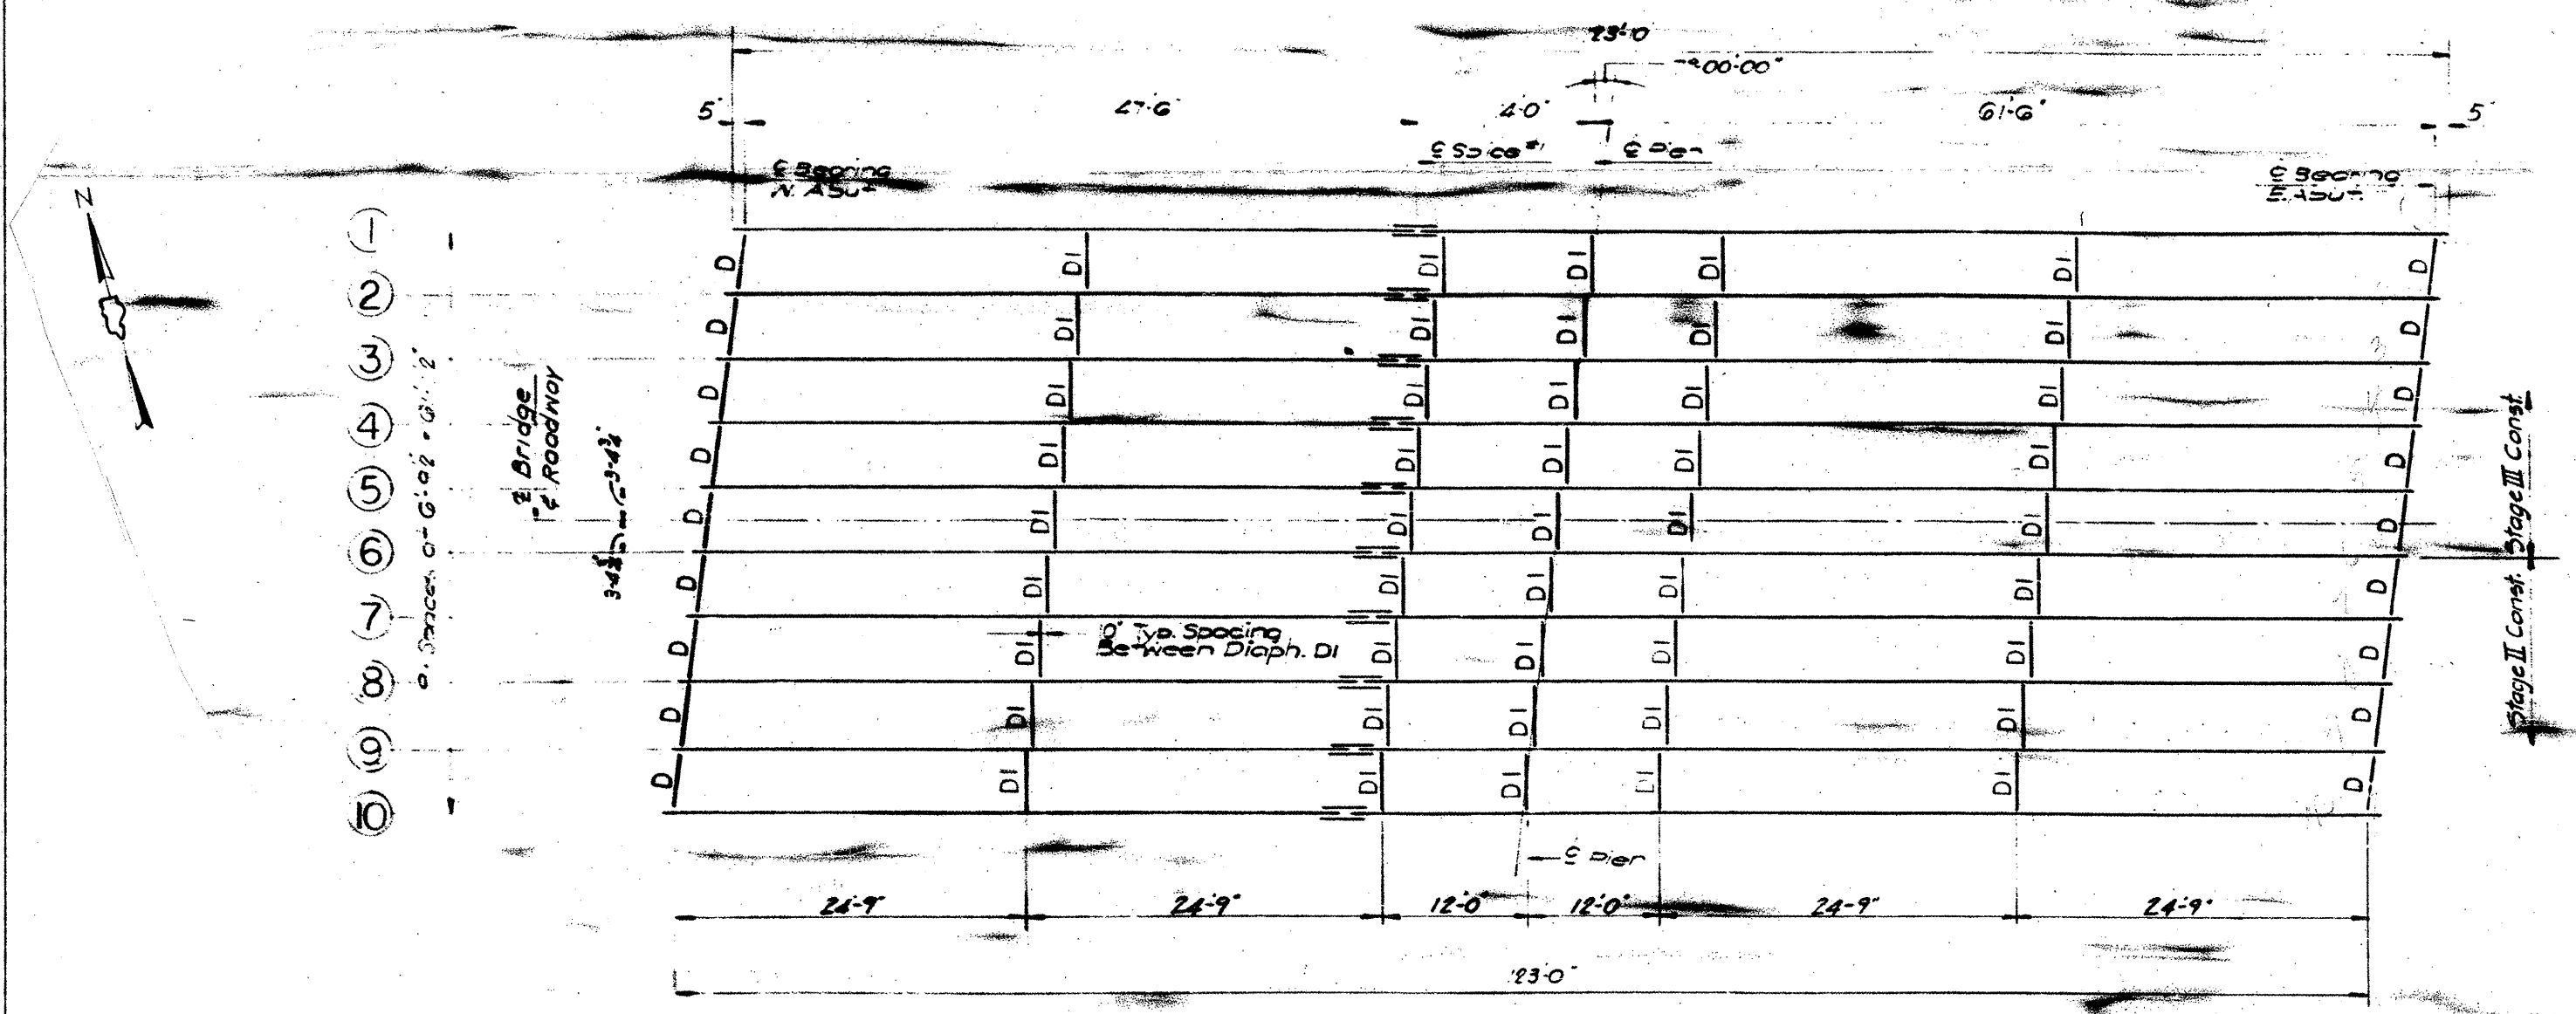 23'-0
00'-00"
5"
47'-6"
4'-0"
61'-6"
5"
℄ Bearing
N. Abut
℄ Splice #1
℄ Pier
℄ Bearing
E. Abut.
N
1
2
3
4
5
6
7
8
9
10
℄ Bridge
℄ Roadway
D D1 D1 D1 D1 D1 D
D D1 D1 D1 D1 D1 D
D D1 D1 D1 D1 D1 D
D D1 D1 D1 D1 D1 D
D D1 D1 D1 D1 D1 D
D D1 D1 D1 D1 D1 D
D D1 D1 D1 D1 D1 D
D D1 D1 D1 D1 D1 D
D D1 D1 D1 D1 D1 D
Typ. Spacing
Between Diaph. D1
Stage III Const.
Stage II Const.
℄ Pier
24'-9"
24'-9"
12'-0"
12'-0"
24'-9"
24'-9"
23'-0"